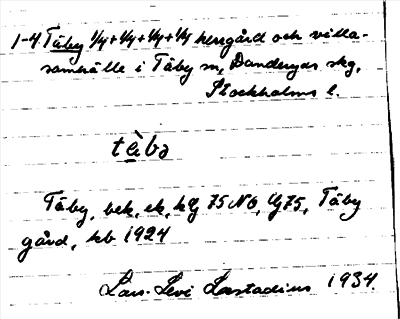 1-4 Täby 1/4+1/4+1/4+1/4 herrgård och villa-
samhälle i Täby sn, Danderyds skg,
Stockholms l.
tàbə
Täby, bek, ek, hg 75 NO, Ug 75, Täby
gård, kb 1924
Lars-Levi Læstadius 1934.